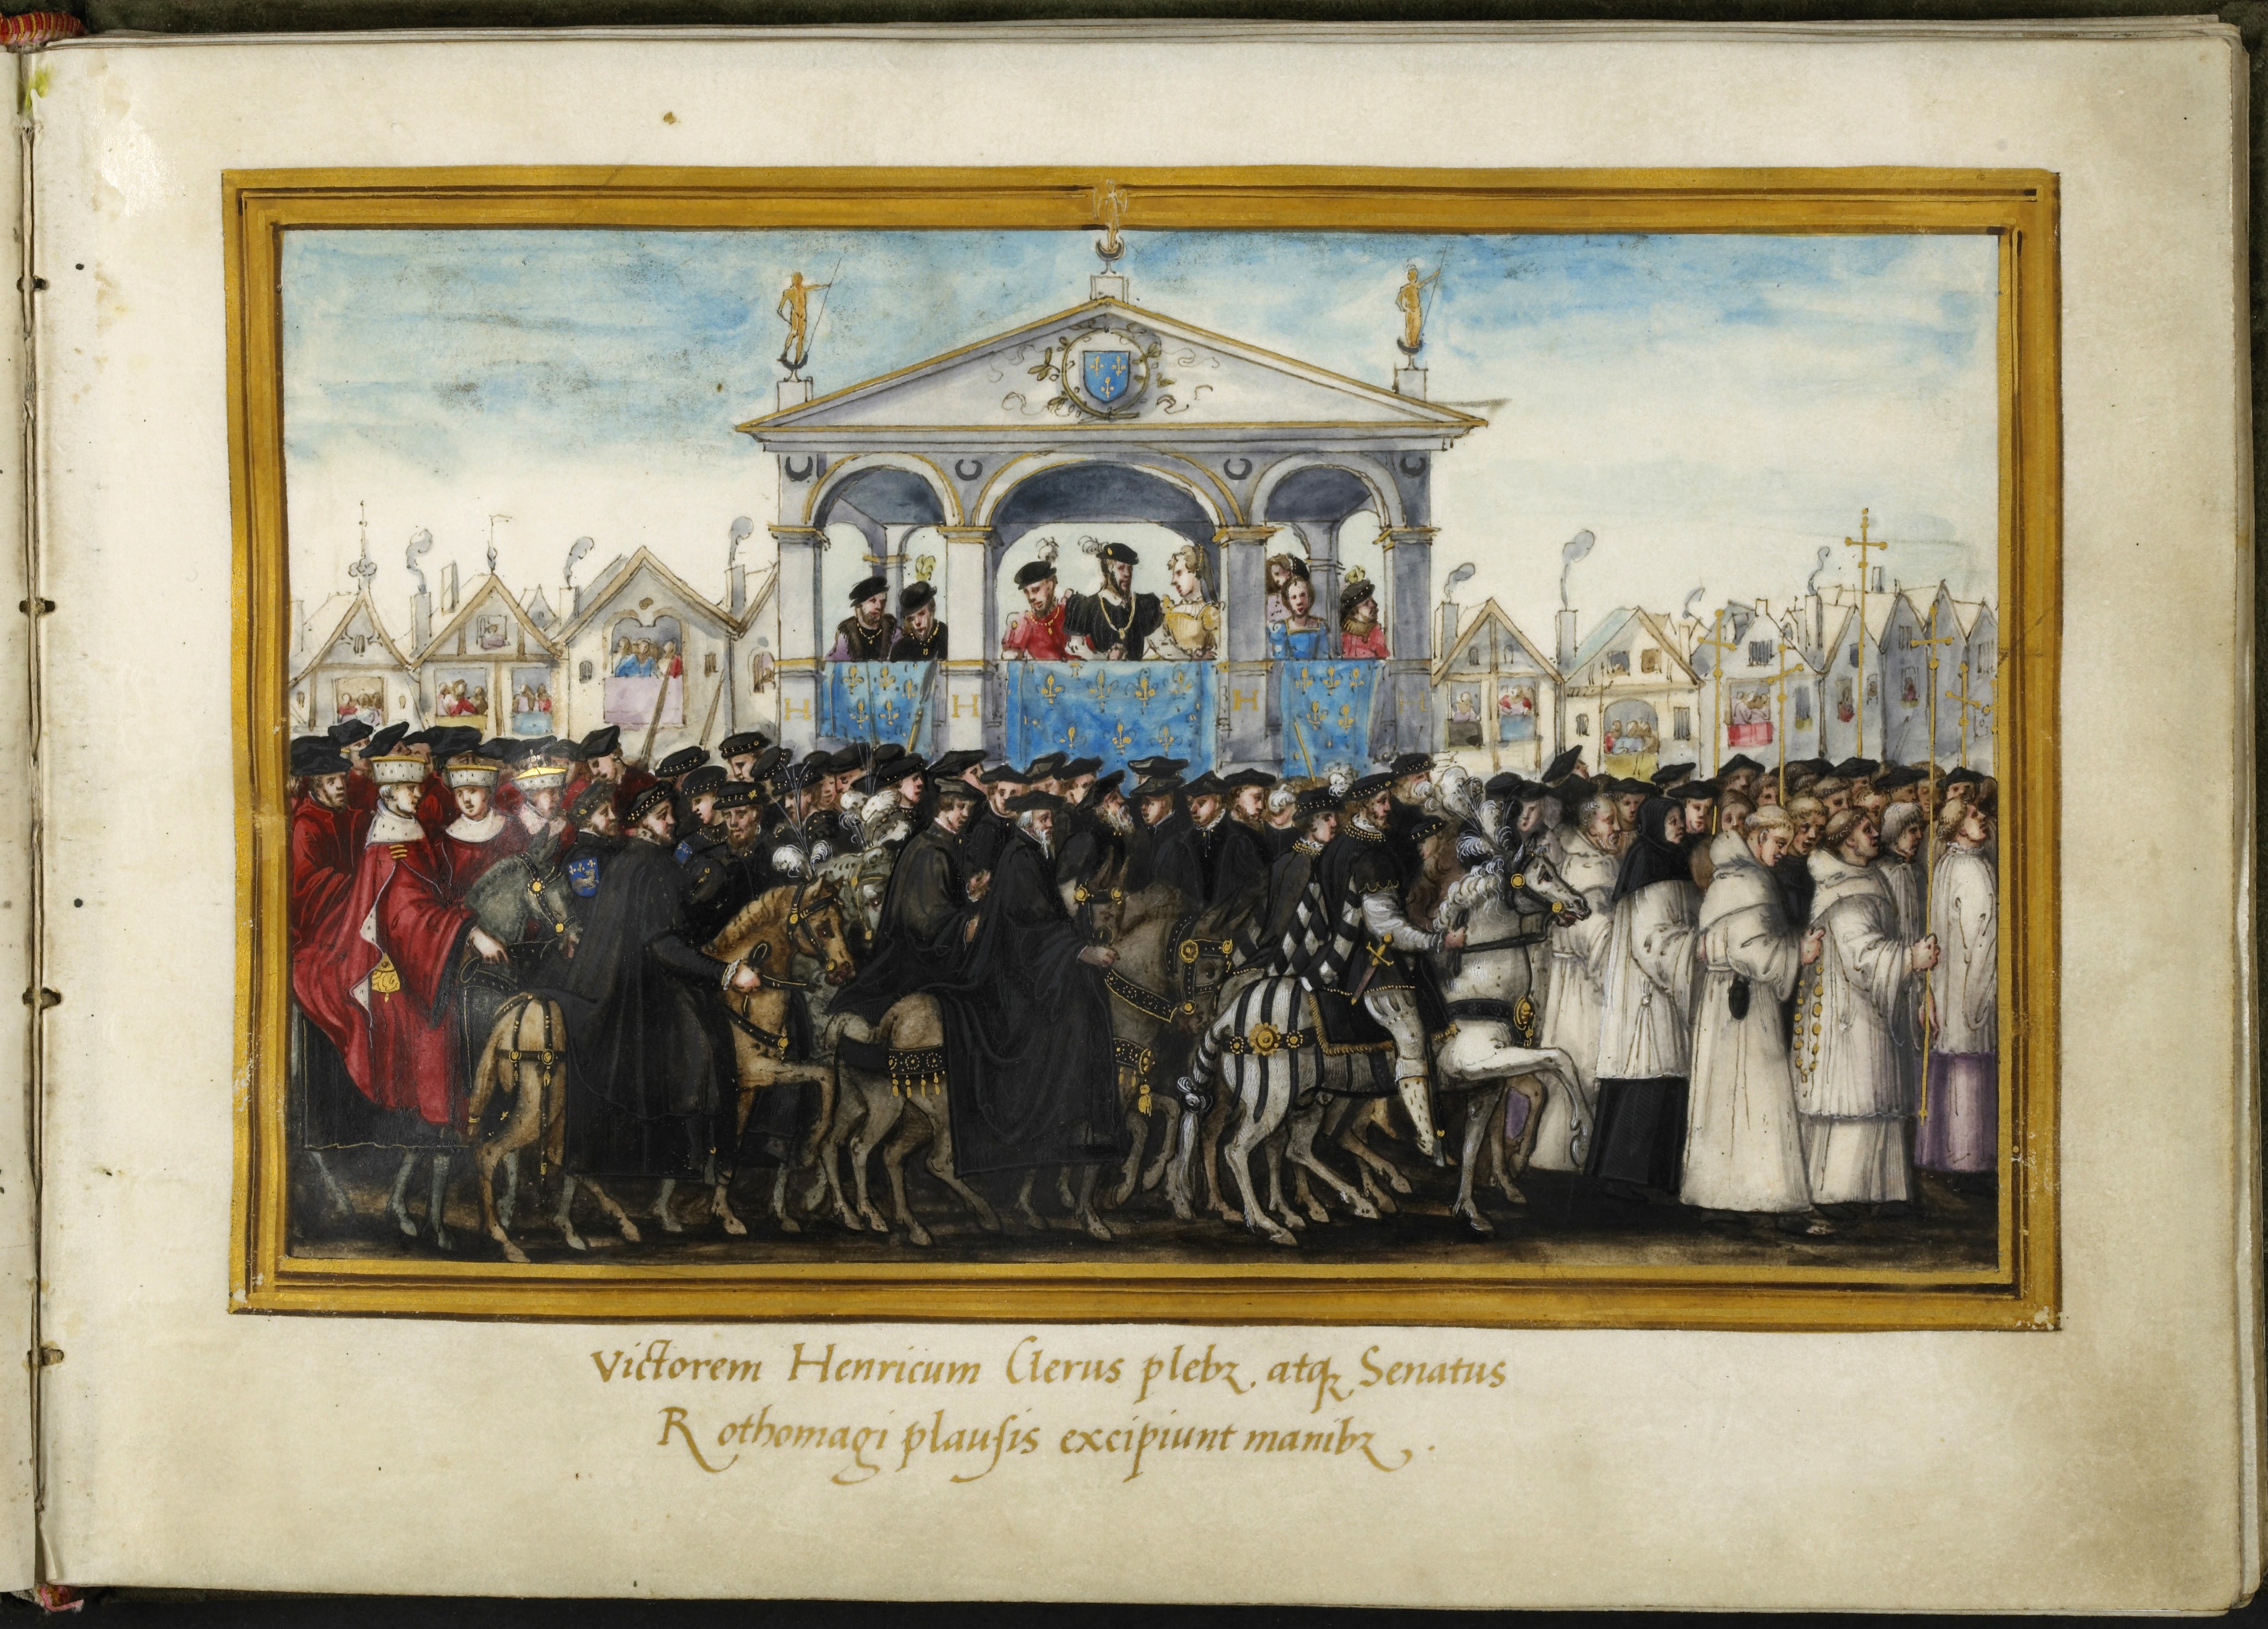 H H H H
Victorem Henricum Clerus plebꝫ, atqꝫ Senatus
Rothomagi plauſis excipiunt manibꝫ.